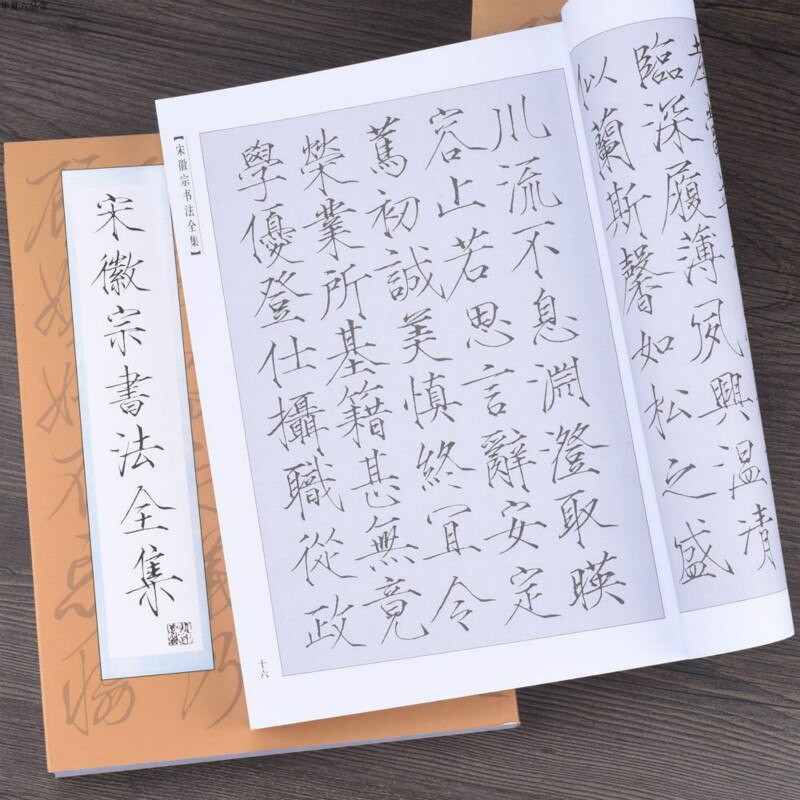 宋徽宗書法全集
【宋徽宗书法全集】
臨深履薄夙興温凊
似蘭斯馨如松之盛
川流不息淵澄取暎
容止若思言辭安定
篤初誠美慎終冝令
榮業所基籍甚無竟
學優登仕攝職從政
十六